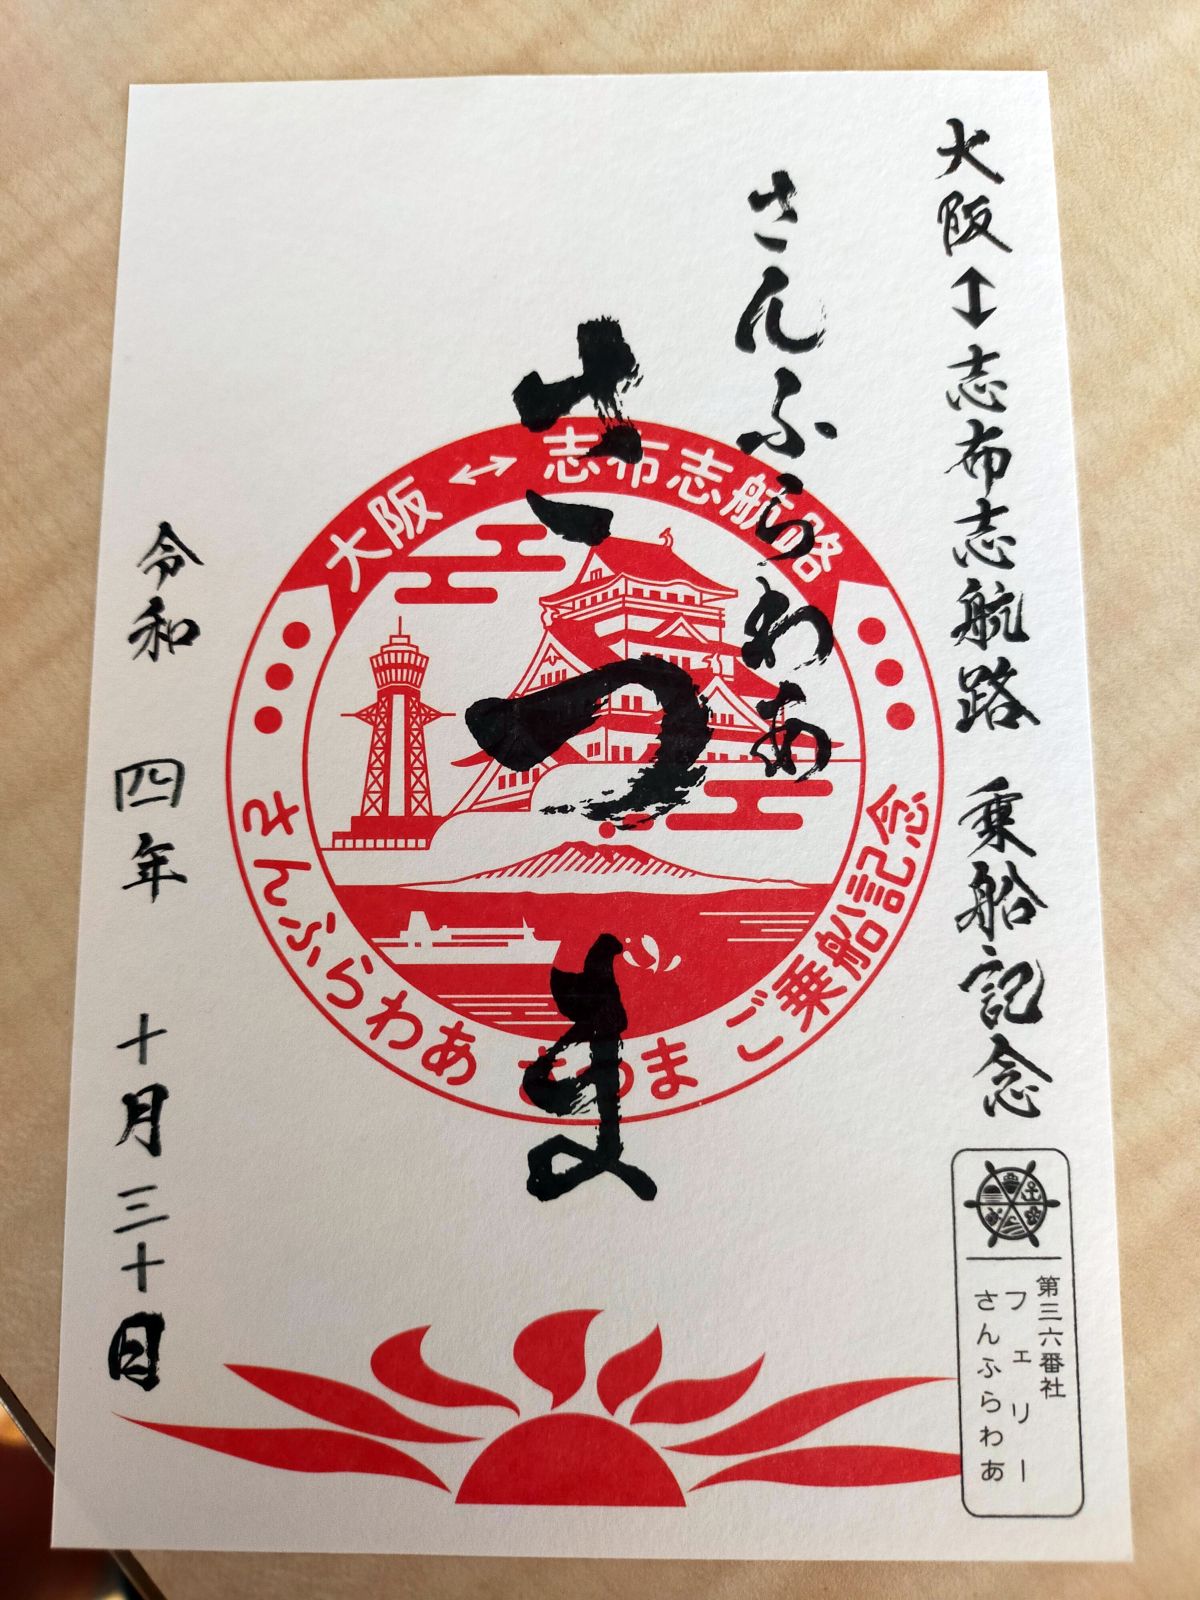 大阪↔志布志航路 乗船記念
さんふらわあ
さつま
令和 四年 十月 三十日
大阪↔志布志航路
さんふらわあ さつま ご乗船記念
第三六番社
フェリー
さんふらわあ